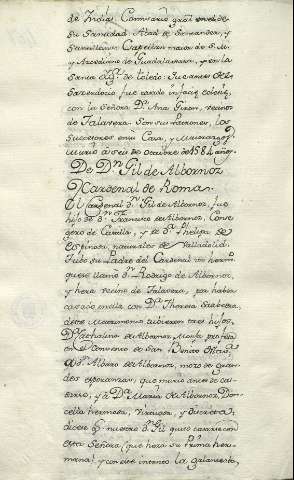 de Yndias, Comisario gral en el de
su Santidad Abad de
Santillana Capellan maior de S. M.
y Arcediano de Guadalaxara, y en la
Santa Igl.ª de toledo. Y antes de el
Sacerdocio fue casado in facie eclesie,
con la Señora D.ª Ana Giron, vecino
de Talavera. Son sus Patronos, los
successores en su Casa, y Maiorazgo
Murio à seis de octubre de 1584 años.
De D.n Gil de Albornoz
Cardenal de Roma.
El Cardenal D.n Gil de Albornoz, fue
hijo de D.n Francisco de Albornoz, Conse
gero de Castilla, y de D.ª Phelipa de
Espinosa, naturales de Valladolid.
Tubo su Padre del Cardenal un herm.º
que se llamó D.n Rodrigo de Albornoz,
y hera vecino de Talavera, por haber
casado en ella con D.ª Theresa Saabedra,
deste Matrimonio tubieron tres hijos,
D.ª de Albornoz Monja profesa
en el Convento de San Benito
à D.n Alonso de Albornoz, mozo de gran
des esperanzas, que murió antes de ca
sarse, y à D.ª Maria de Albornoz, Don
cella hermosa, virtuosa, y discreta,
dicese q.e nuestro D.n Gil quiso casarse con
esta Señora (que hera su Prima her
mana) y con este intento la galanteó,